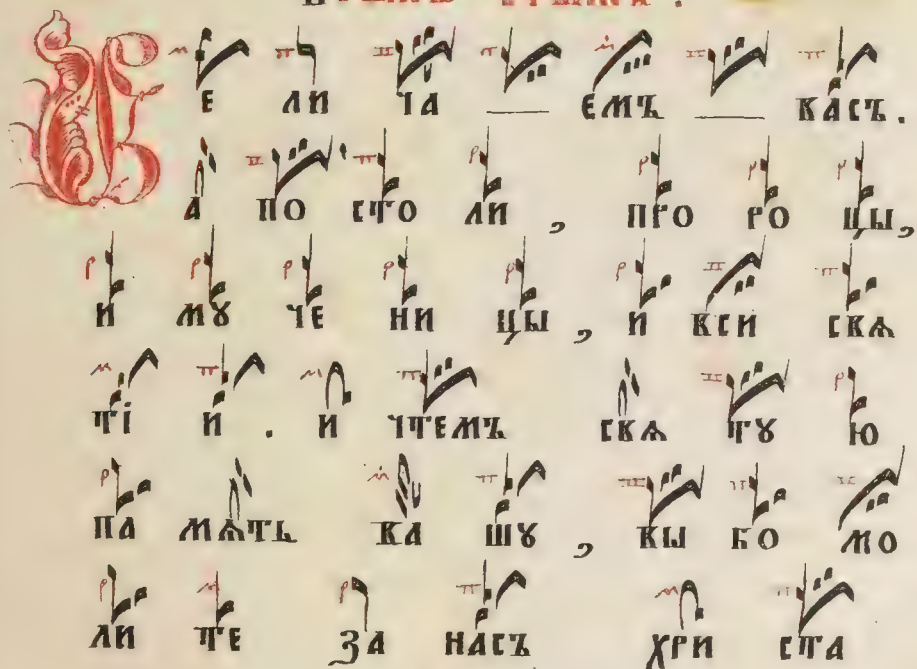 В Е ЛИ ЧА ЕМЪ ВАСЪ.
А ПО СТО ЛИ, ПРО РО ЦЫ,
И МꙊ ЧЕ НИ ЦЫ, И ВСИ СВѦ
ТІ И. И ЧТЕМЪ СВѦ ТꙊ Ю
ПА МѦТЬ ВА ШꙊ, ВЫ БО МО
ЛИ ТЕ ЗА НАСЪ ХРИ СТА